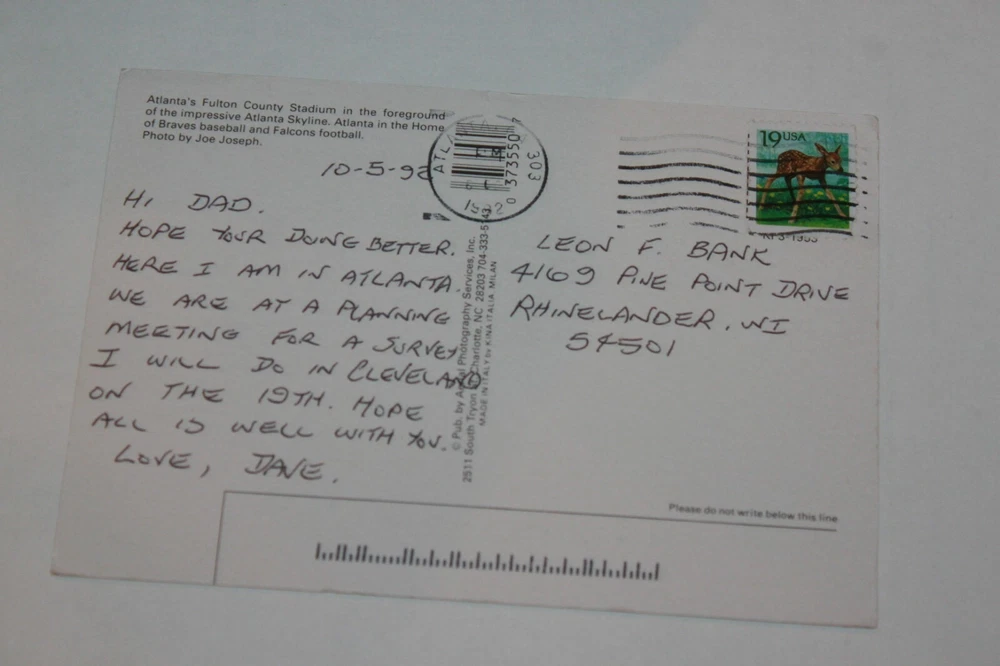 Atlanta's Fulton County Stadium in the foreground
of the impressive Atlanta Skyline. Atlanta in the Home
of Braves baseball and Falcons football.
Photo by Joe Joseph.
10-5-92
HI DAD.
HOPE YOUR DOING BETTER.
HERE I AM IN ATLANTA.
WE ARE AT A PLANNING
MEETING FOR A SURVEY
I WILL DO IN CLEVELAND
ON THE 19TH. HOPE
ALL IS WELL WITH YOU.
LOVE, DAVE.
303
0 373550
© Pub. by Photography Services, Inc.
2511 South Tryon, Charlotte, NC 28203 704-333-5143
MADE IN ITALY by KINA ITALIA MILAN
19 USA
LEON F. BANK
4169 PINE POINT DRIVE
RHINELANDER, WI
54501
Please do not write below this line